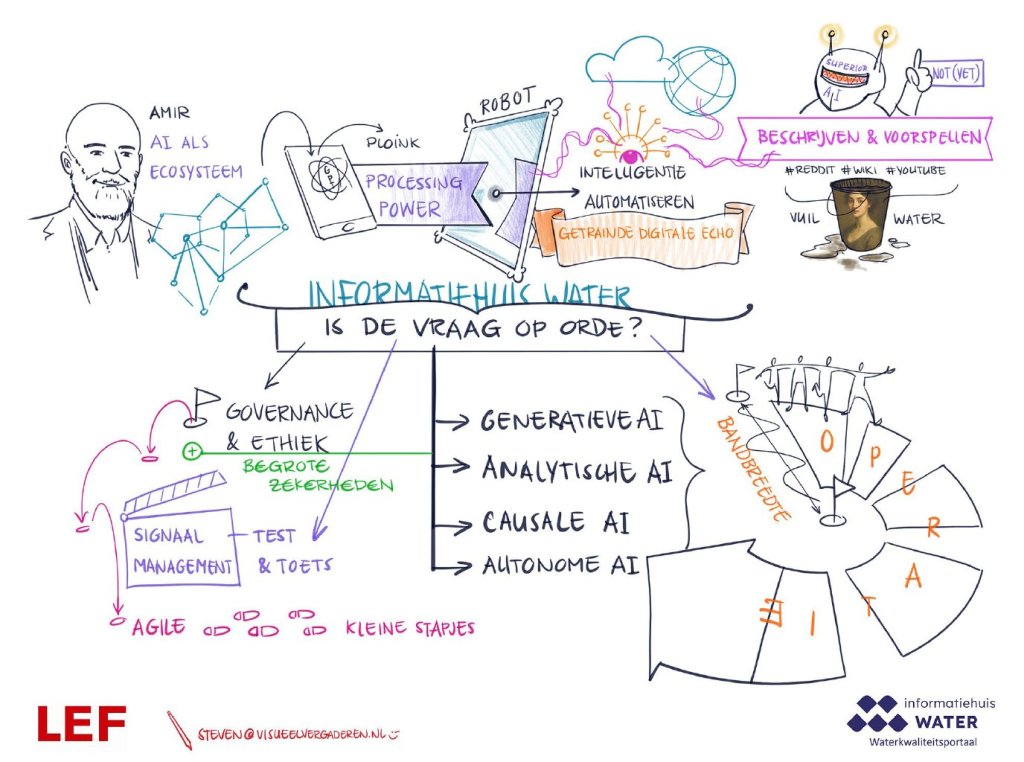 AMIR
AI ALS
ECOSYSTEEM
GPT
PLOINK
PROCESSING
POWER
ROBOT
INTELLIGENTIE
AUTOMATISEREN
GETRAINDE DIGITALE ECHO
SUPERIOR
A|I
NOT (YET)
BESCHRIJVEN & VOORSPELLEN
#REDDIT #WIKI #YOUTUBE
VUIL WATER
INFORMATIEHUIS WATER
IS DE VRAAG OP ORDE?
GOVERNANCE
& ETHIEK
BEGROTE
ZEKERHEDEN
SIGNAAL
MANAGEMENT
TEST
& TOETS
AGILE
KLEINE STAPJES
GENERATIEVE AI
ANALYTISCHE AI
CAUSALE AI
AUTONOME AI
BANDBREEDTE
OPERATIE
LEF
STEVEN@VISUEELVERGADEREN.NL
informatiehuis
WATER
Waterkwaliteitsportaal